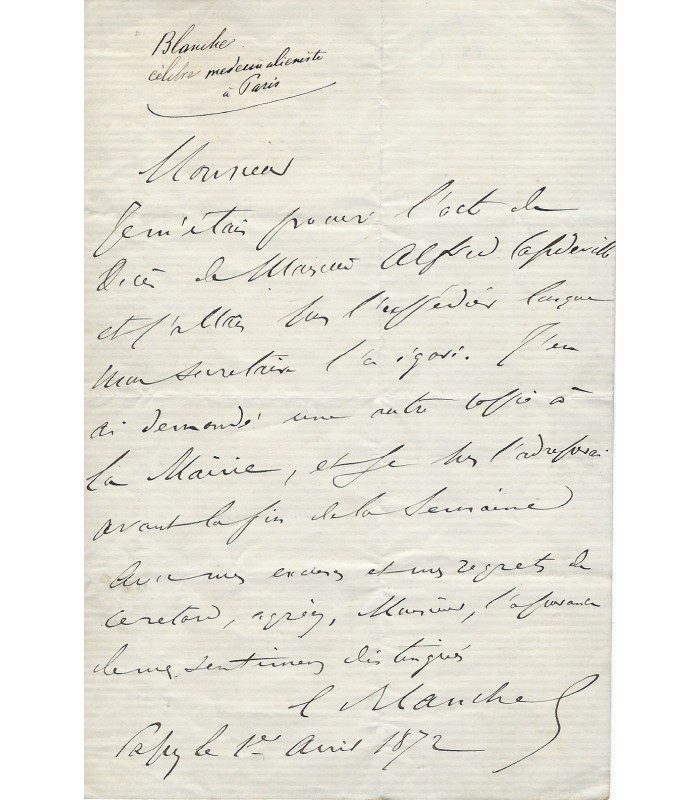 Blanche
célèbre medecin alieniste
à Paris
Monsieur
Je m'étais procuré l'acte de
Décès de Monsieur Alfred Capdeville
et j'allais vous l'expédier lorsque
mon secretaire l'a égaré. J'en
ai demandé une autre copie à
la Mairie, et je vous l'adresserai
avant la fin de la Semaine
Avec mes excuses et mes regrets de
ce retard, agréez, Monsieur, l'assurance
de mes sentimens distingués
E Blanche
Passy le 1er Avril 1872